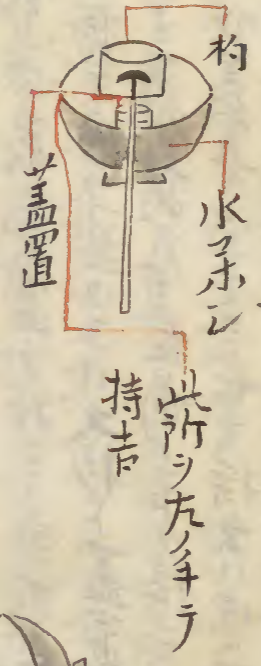 杓
水コホシ
蓋置
此所ヲ左ノ手テ
持吉